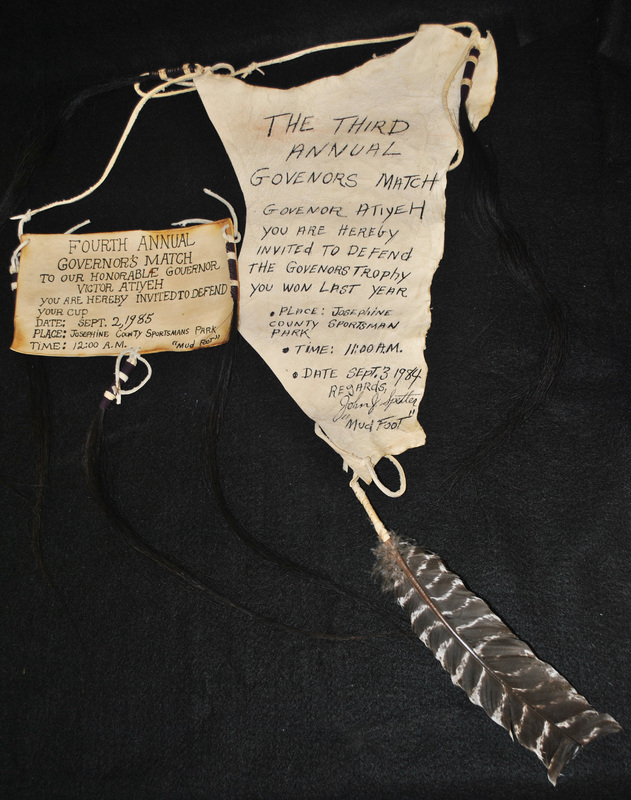 THE THIRD
ANNUAL
GOVENORS MATCH
GOVENOR ATIYEH
YOU ARE HEREBY
INVITED TO DEFEND
THE GOVENORS TROPHY
YOU WON LAST YEAR
• PLACE: JOSEPHINE
COUNTY SPORTSMAN
PARK
• TIME: 11:00 A.M.
• DATE SEPT. 3 1984
REGARDS,
John J
"MUD FOOT"
FOURTH ANNUAL
GOVERNOR'S MATCH
TO OUR HONORABLE GOVERNOR
VICTOR ATIYEH
YOU ARE HEREBY INVITED TO DEFEND
YOUR CUP
DATE: SEPT. 2, 1985
PLACE: JOSEPHINE COUNTY SPORTSMANS PARK
TIME: 12:00 A.M. "MUD FOOT"